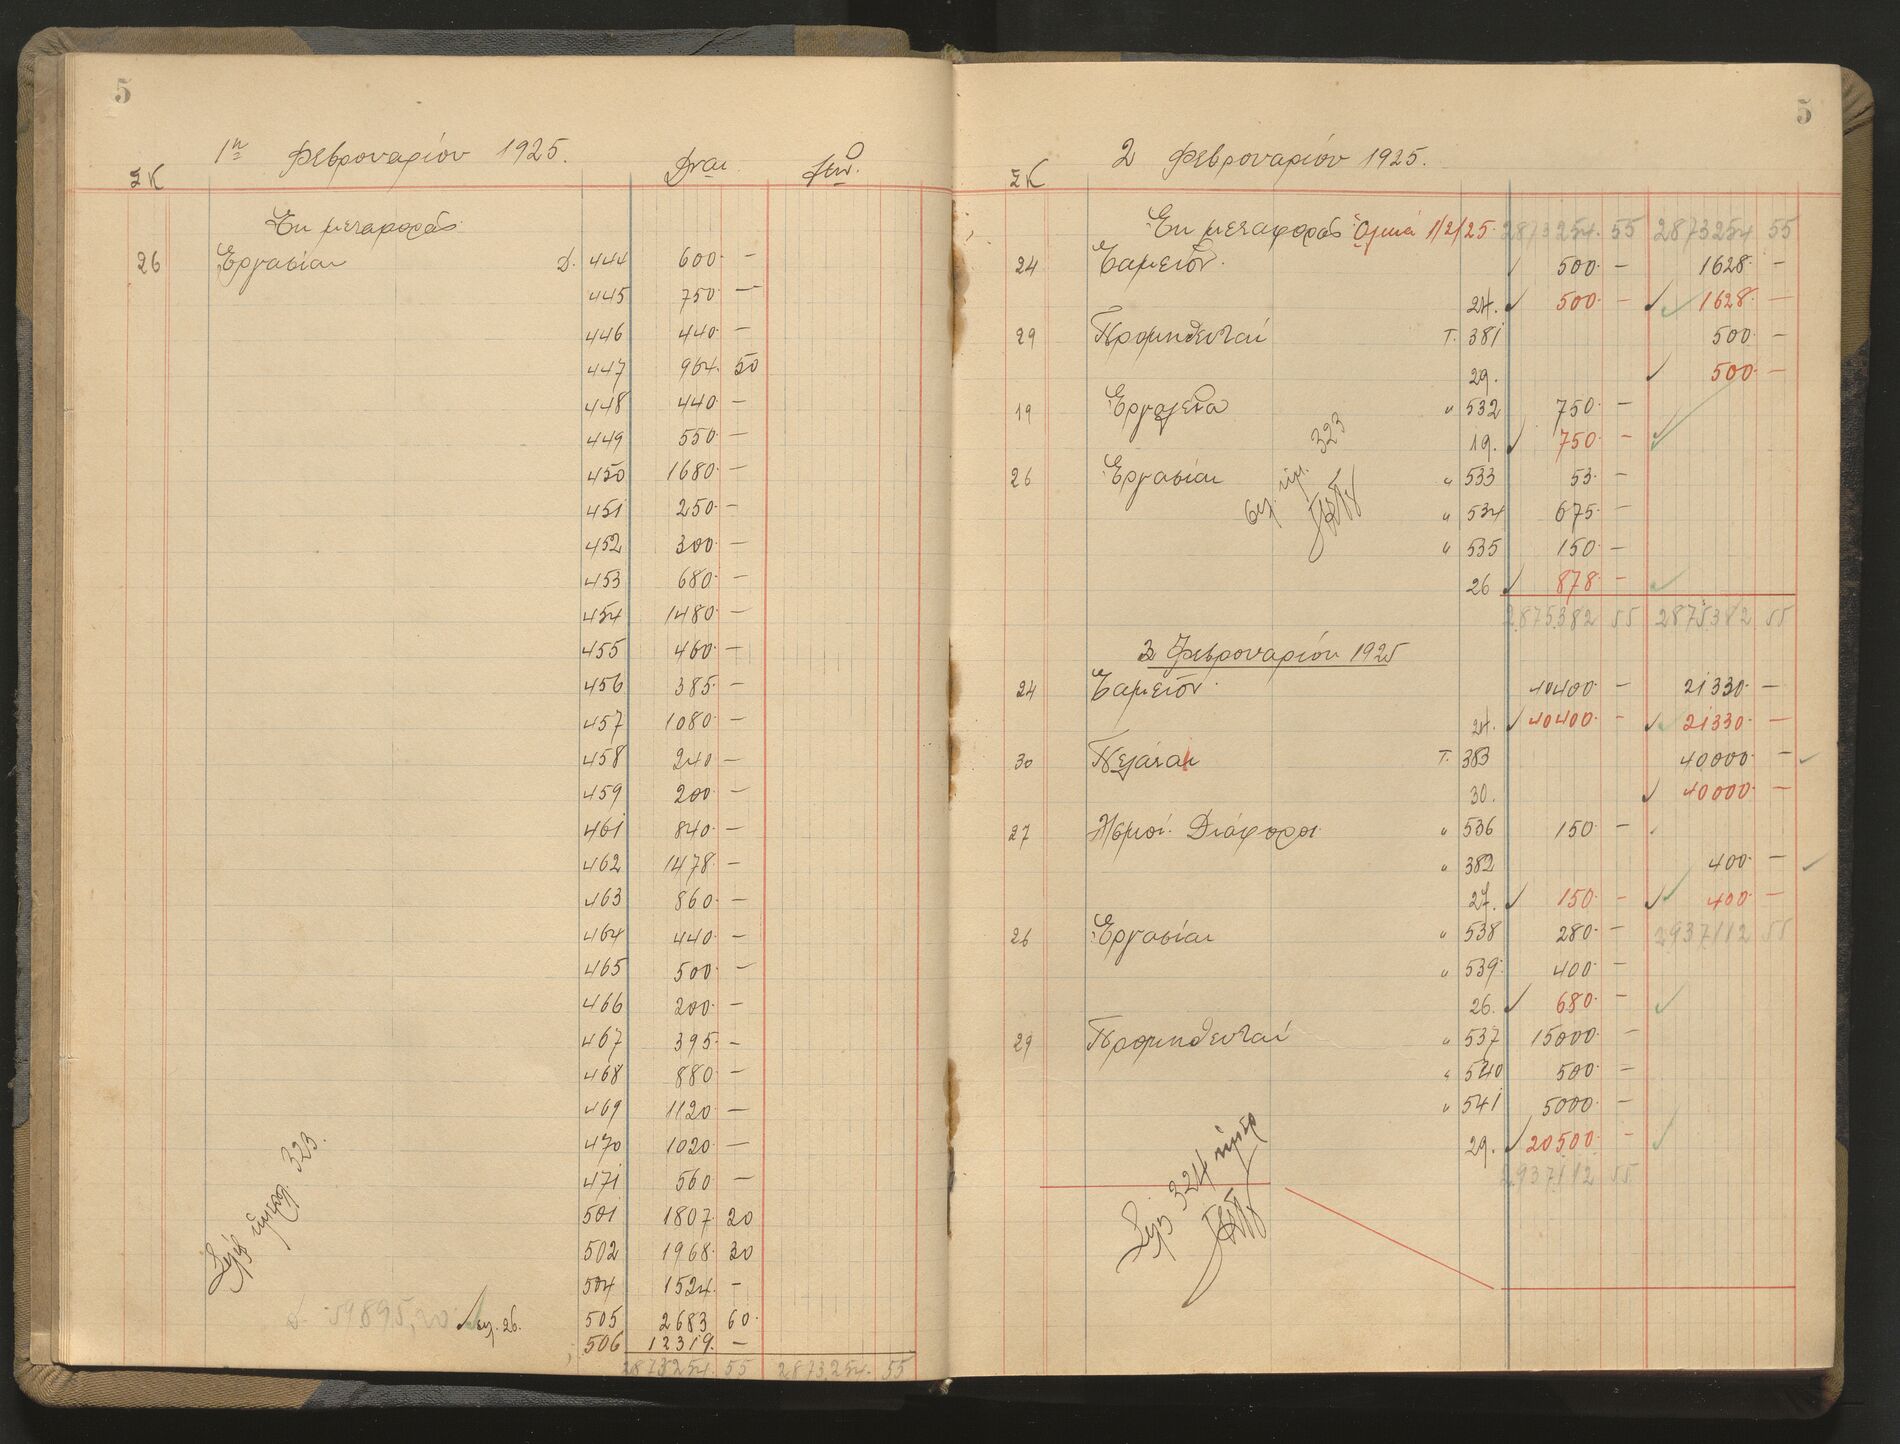 5
1η Φεβρουαρίου 1925.
ΣΚ
Εκ μεταφοράς
26 Εργασίαι Δ. 444 600 —
445 750 —
446 440 —
447 964. 50
448 440 —
449 550 —
450 1680 —
451 250 —
452 300 —
453 680 —
454 1480 —
455 460 —
456 385 —
457 1080 —
458 240 —
459 200 —
461 840 —
462 1478 —
463 860 —
464 440 —
465 500 —
466 200 —
467 395 —
468 880 —
469 1120 —
470 1020 —
471 560 —
501 1807 20
502 1968 30
504 1524 —
505 2683 60
506 12319 —
2873254. 55 2873254. 55
323.
Δ. 59895,20 26.
5
2 Φεβρουαρίου 1925.
ΣΚ
Εκ μεταφοράς Ολικά 1/2/25 2873254. 55 2873254 55
24 Ταμείον. 500 — 1628 —
24. 500 — 1628 —
29 Προμηθευταί Τ. 381 500 —
29. 500 —
19 Εργαλεία " 532 750 —
19. 750 —
323
26 Εργασίαι " 533 53 —
" 534 675 —
" 535 150 —
26 878 —
2875382 55 2875382 55
3 Φεβρουαρίου 1925
24 Ταμείον. 40400 — 21330 —
24. 40400 — 21330 —
30 Πελάται Τ. 383 40000 —
30. 40000 —
27 Λ)σμοί Διάφοροι " 536 150 —
" 382 400 —
27. 150 — 400 —
26 Εργασίαι " 538 280 — 2937112 55
" 539 400 —
26. 680 —
29 Προμηθευταί " 537 15000 —
" 540 500 —
" 541 5000 —
29. 20500 —
2937112 55
324